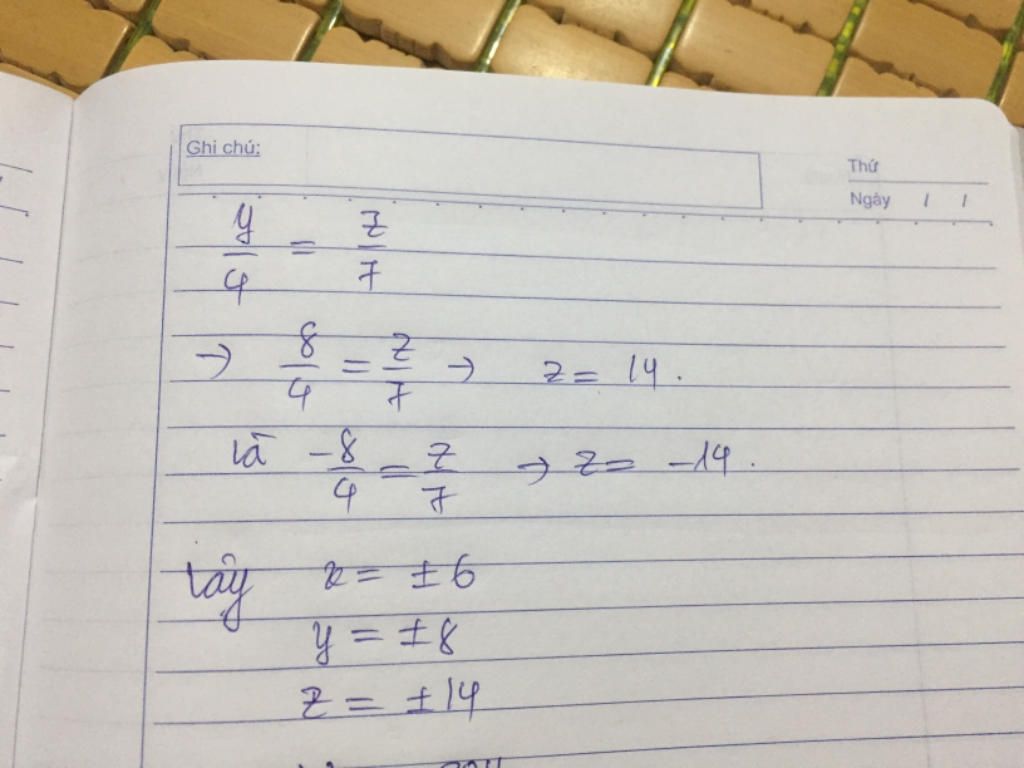 Ghi chú:
Thứ
Ngày / /
y/4 = z/7
→ 8/4 = z/7 → z = 14.
và -8/4 = z/7 → z = -14.
Vậy x = ±6
y = ±8
z = ±14